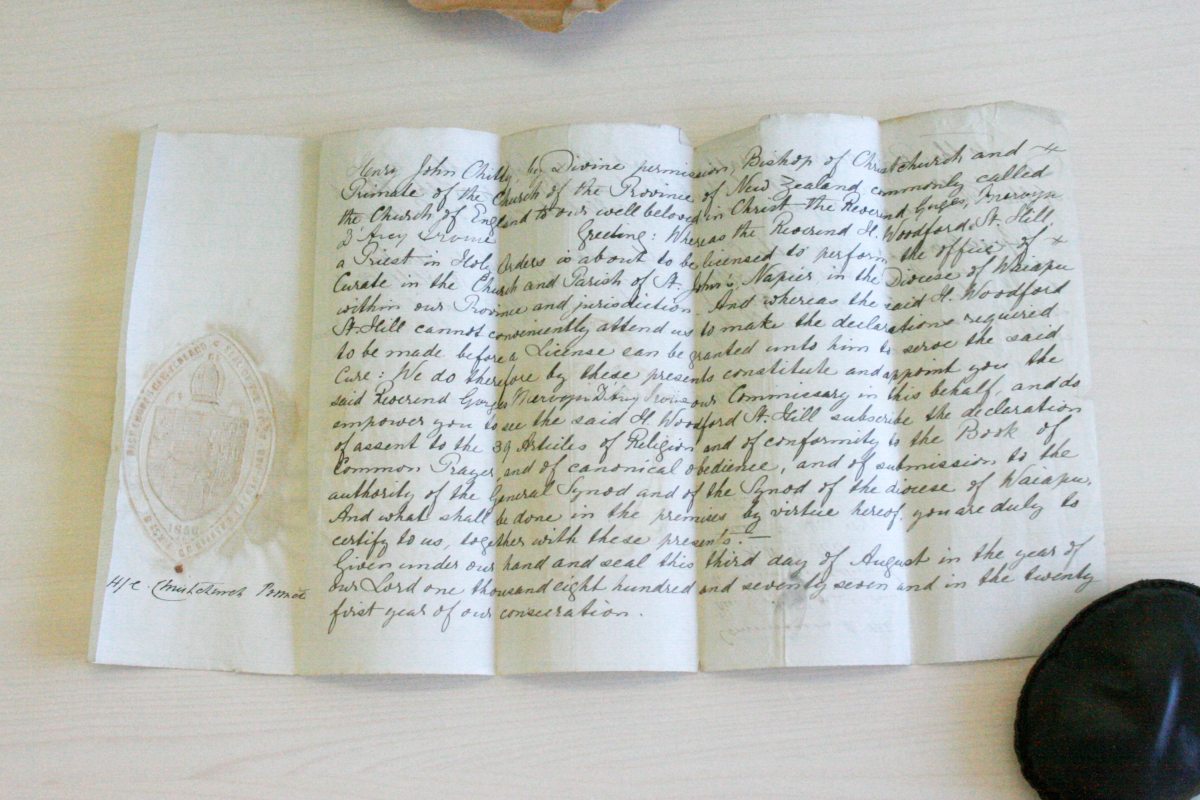 Henry John Chitty by Divine permission, Bishop of Christchurch and
Primate of the Church of the Province of New Zealand commonly called
the Church of England to our well beloved in Christ the Reverend Gorges Mervyn
D'Arcy Irvine Greeting: Whereas the Reverend H. Woodford St. Hill,
a Priest in Holy Orders is about to be licensed to perform the office of
Curate in the Church and Parish of St. John's, Napier, in the Diocese of Waiapu
within our Province and jurisdiction. And whereas the said H. Woodford
St. Hill cannot conveniently attend us to make the declarations required
to be made before a License can be granted unto him to serve the said
Cure: We do therefore by these presents constitute and appoint you the
said Reverend Gorges Mervyn D'Arcy Irvine our Commissary in this behalf, and do
empower you to see the said H. Woodford St. Hill subscribe the declaration
of assent to the 39 Articles of Religion and of conformity to the Book of
Common Prayer, and of canonical obedience, and of submission to the
authority of the General Synod and of the Synod of the diocese of Waiapu,
And what shall be done in the premises by virtue hereof, you are duly to
certify to us, together with these presents.—
Given under our hand and seal this third day of August in the year of
our Lord one thousand eight hundred and seventy seven and in the twenty
first year of our consecration.
H. J. C. Christchurch
1856